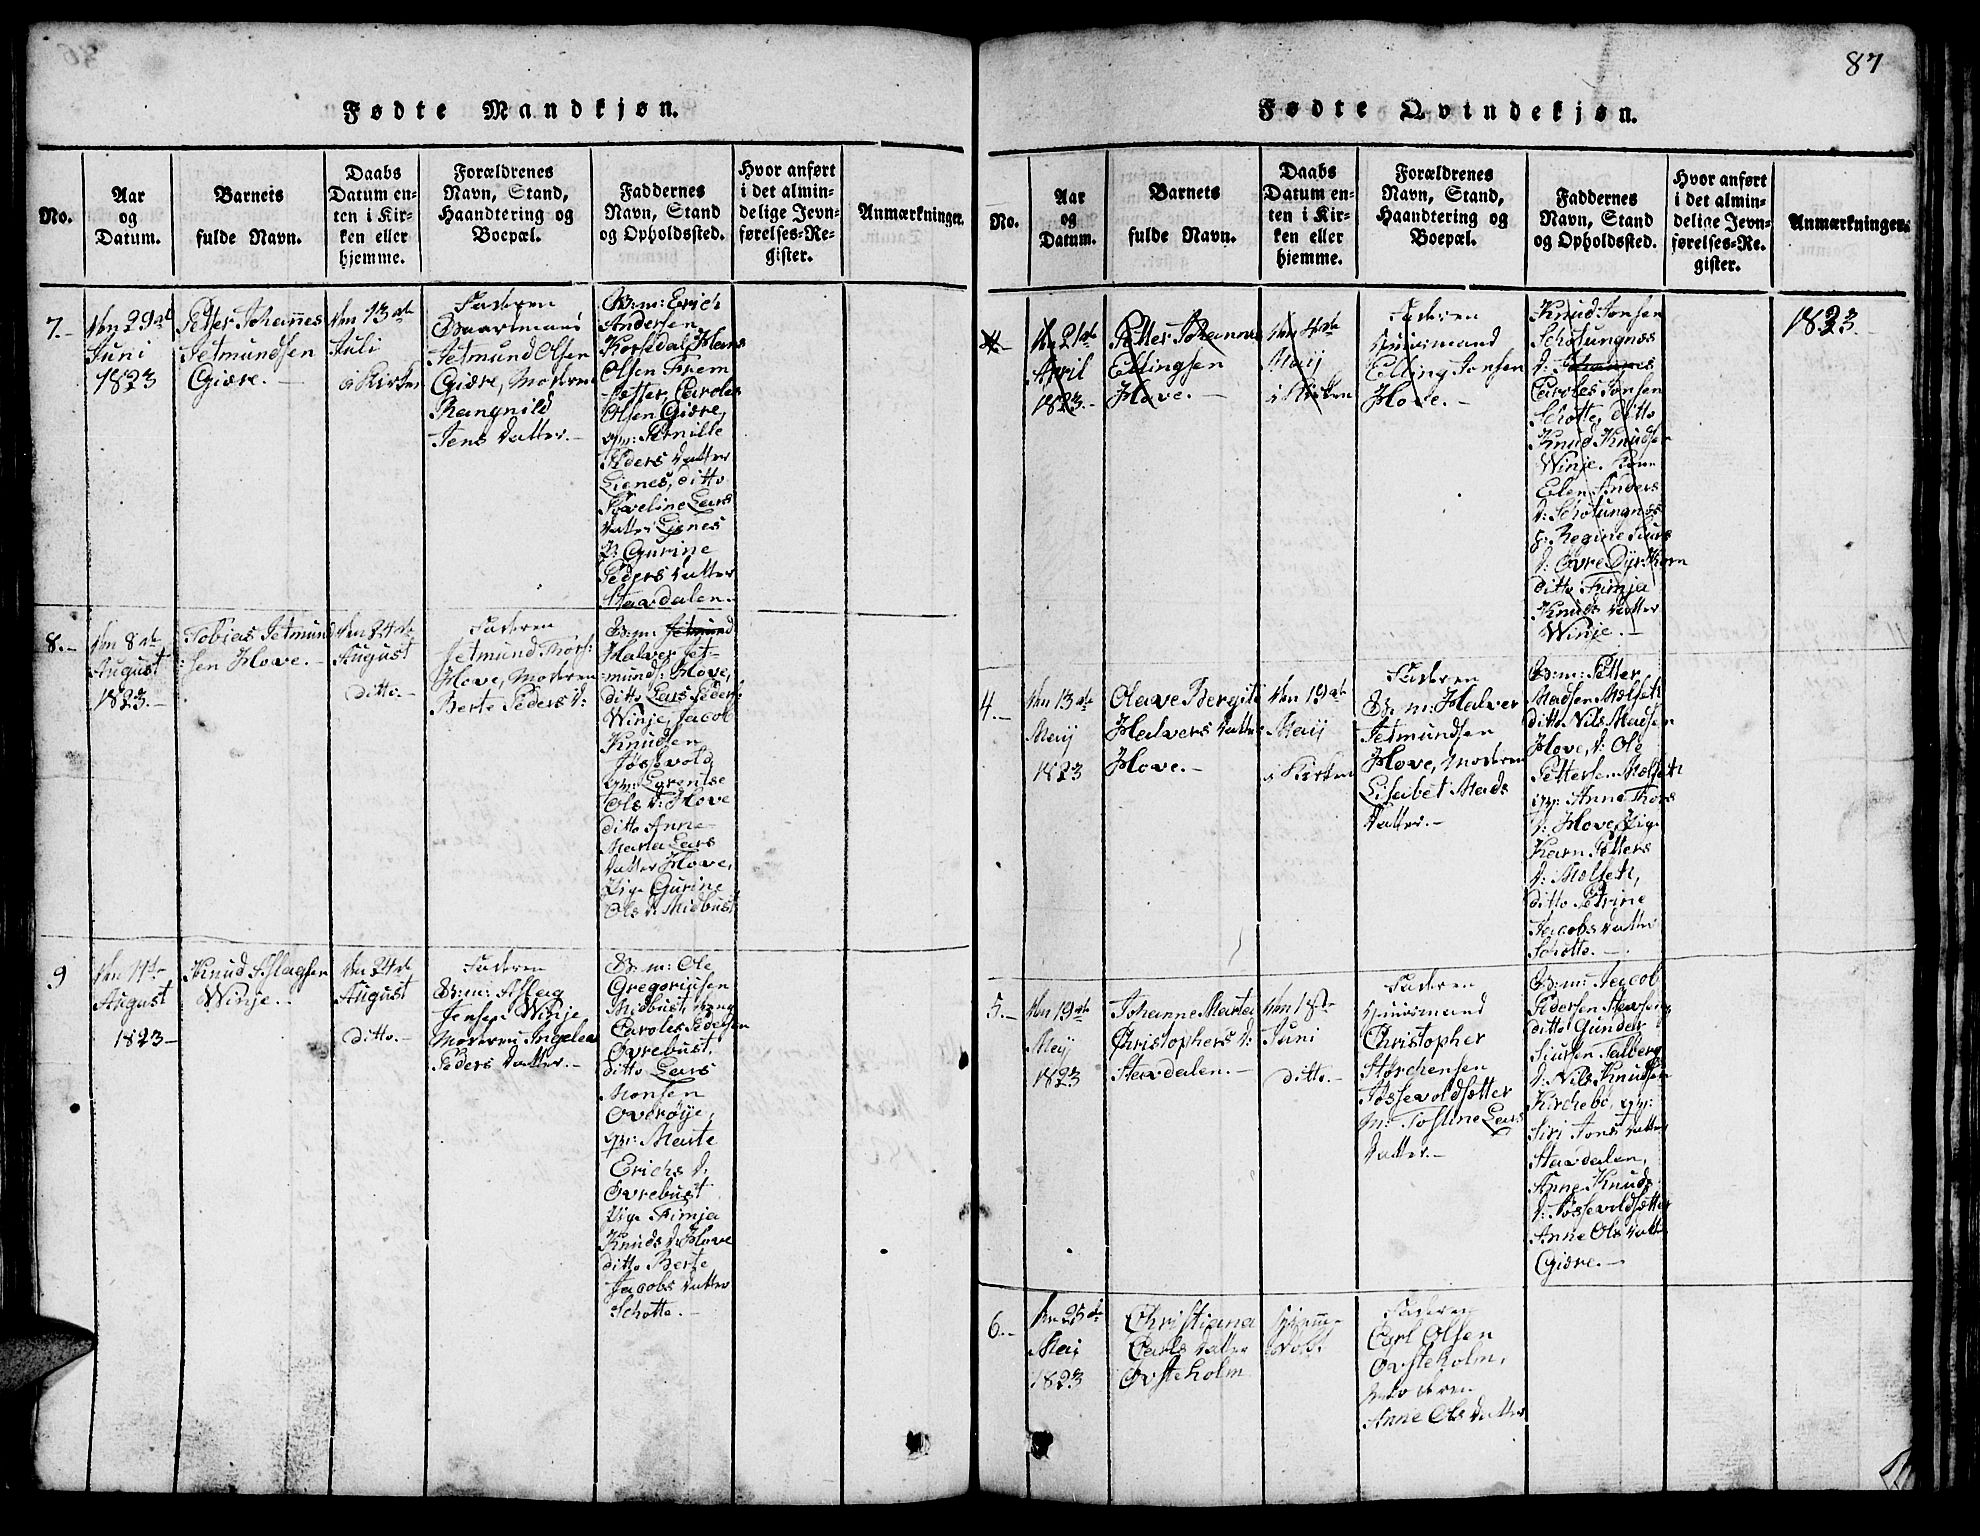 87
Fødte Mandkjøn.
No.
Aar
og
Datum.
Barnets
fulde Navn.
Daabs
Datum en-
ten i Kir-
ken eller
hjemme.
Forældrenes
Navn, Stand,
Haandtering og
Boepæl.
Faddernes
Navn, Stand
og Opholdssted.
Hvor anført
i det almin-
delige Jevn-
førelses-Re-
gister.
Anmærkninger.
7.-
den 29de
Juni
1823
Petter Johannes
Jetmundsen
Giøre. -
den 13de
Juli
i Kirken
Faderen
Jetmund Olsen
Giøre, Moderen
Rangnild
Jens datter. -
Gm: Erich
Andersen
Korsedal, Hans
Olsen Frem
Petter, Caroles
Olsen Giøre,
Pernille
Peders datter
Lienes, ditto
Lars
datter Lienes
P: Gurine
Peders datter
Stavdalen.
8.-
den 8de
August
1823.-
Tobias Jetmund
sen Hove. -
den 24de
August
ditto. -
Faderen
Jetmund Thors:
Hove, Moderen
Berte Peders d:
G: m: Jetmund
Halver Jet-
munds: Hove,
ditto Lars Peders:
Winje, Jacob
Knudsen
Jøssevold,
Lorentse
Ols d: Hove
ditto Anne
Marta Lars
datter Hove,
Pige Gurine
Ols d: Midbust
9
den 11te
August
1823-
Knud Aslagsen
Winje. -
den 24de
August
ditto. -
Faderen
G: m: Aslag
Jensen Winje
Moderen Ingelen
Peders datter. -
G: m: Ole
Gregoriusen
Midbust, dreng
Caroles Pedersen
Ovrebust,
ditto Lars
Monsen
Overøije,
Marte
Erichs d:
Ovrebust
Pige Fimja
Knuds d: Hove
ditto Berte
Jacobs datter
Schotte. -
Fødte Qvindekjøn.
No.
Aar
og
Datum.
Barnets
fulde Navn.
Daabs
Datum en-
ten i Kir-
ken eller
hjemme.
Forældrenes
Navn, Stand,
Haandtering og
Boepæl.
Faddernes
Navn, Stand
og Opholdssted.
Hvor anført
i det almin-
delige Jevn-
førelses-Re-
gister.
Anmærkninger.
den 21de
April
1823.-
Petter Johannes
Ellingsen
Hove. -
den 4de
Maij
i Kirken
Faderen
Huusmand
Elling Jonsen
Hove. -
Knud Jonsen
Schotungnæs
d: Johannes
Caroles Jonsen
Schotte, ditto
Knud Knudsen
Winje. Kone
Elen Anders
d: Schotungnæs
p: Regine Siurs
d: Øvre Dyrkorn
ditto Fimja
Knuds datter
Winje. -
1823.
4.-
den 13de
Maij
1823
Olave Bergite
Halvers datter
Hove. -
den 19de
Maij
i Kirken
Faderen
G: m: Halver
Jetmundsen
Hove, Moderen
Lisabet Mads
datter. -
G: m: Petter
Madsen Molseth
ditto Nils Madsen
Hove, d: Ole
Pettersen Molseth
Anne Thors
d: Hove, Pige
Karn Petters
d: Molseth,
ditto Petrine
Jacobs datter
Schotte. -
5.-
den 19de
Meij
1823
Johanne Marta
Christophers d:
Stavdalen. -
den 18de
Juni
ditto. -
Faderen
Huusmand
Christopher
Størchersen
Jøssevoldsætter
M: Tostine Lars
datter. -
G: m: Jacob
Pedersen
ditto Gunder
Siursen Talberg
d: Nils Knudsen
Kirchebø,
Siri Jons datter
Stavdalen,
Anne Knuds
d: Jøssevoldsætter
Anne Ols datter
Giøre. -
6.-
den 25de
Mai
1823
Christiana
Carls datter
Ovsteholm
Hjemme
døbt.
Faderen
Carl Olsen
Ovsteholm,
Moderen
Anne Ols datter